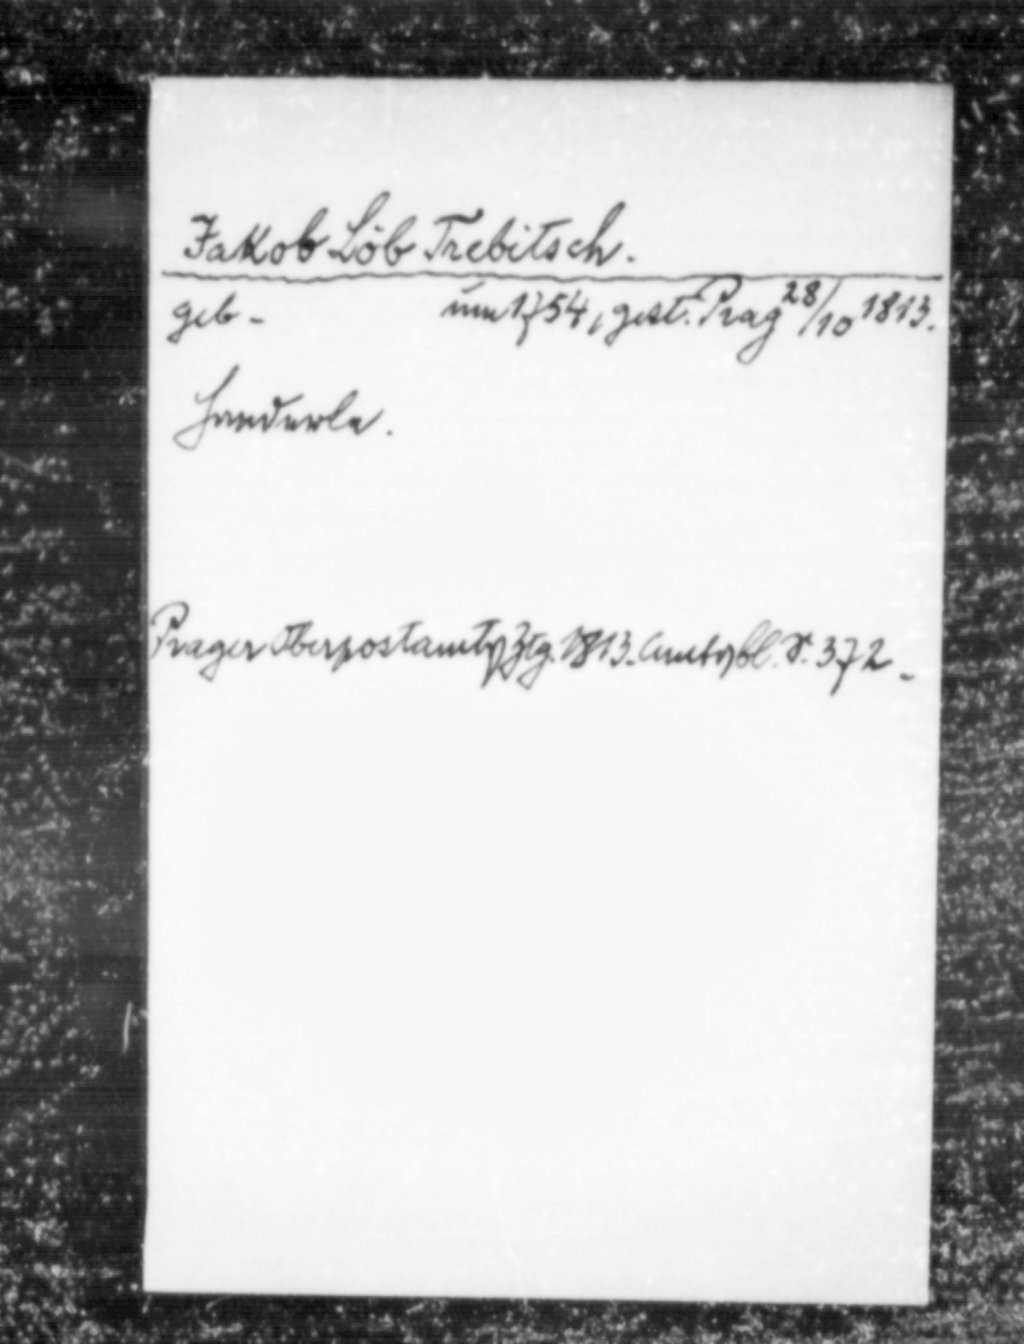 Jakob Löb Trebitsch.
geb - um 1754, gest. Prag 28/10 1813.
Handerle.
Prager Oberpostamts Ztg. 1813. Amtsbl. S. 372.